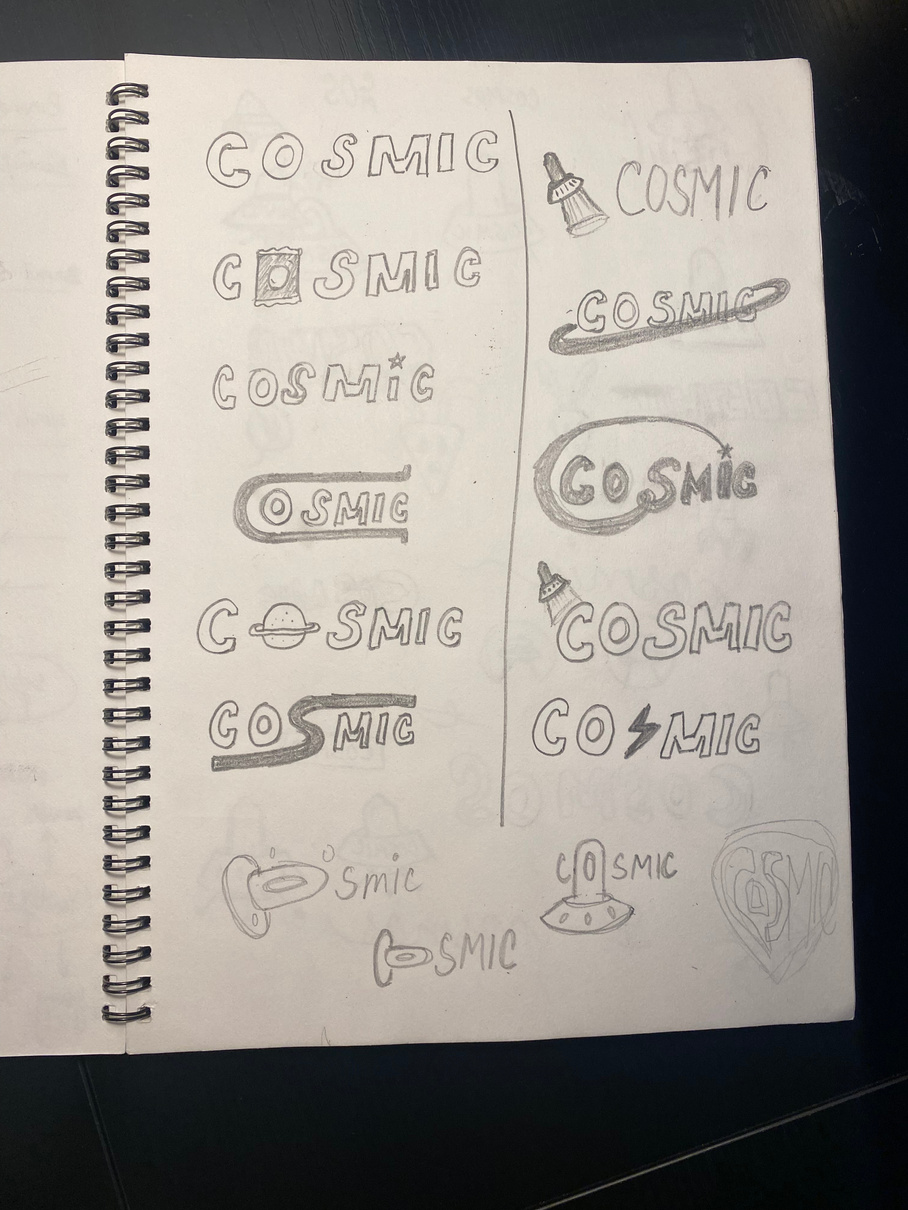 COSMIC
COSMIC
COSMiC
COSMIC
COSMIC
COSMIC
COSMIC
COSMIC
COSMiC
COSMIC
COSMIC
COsmic
COSMIC
COSMIC
COSMO